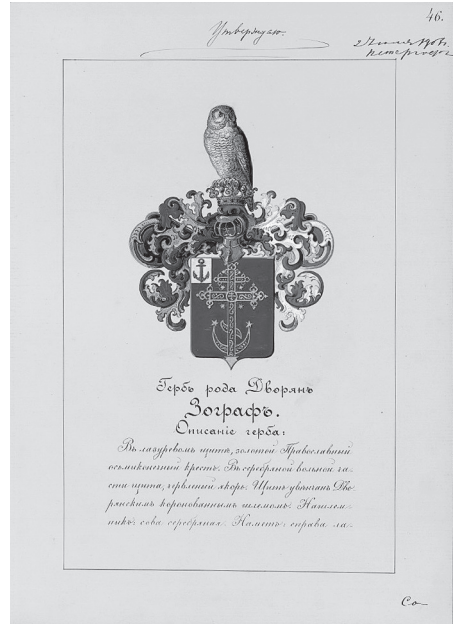 46.
Утверждаю.
2 Июля 1901.
Петергофъ
Гербъ рода Дворянъ
Зографъ.
Описаніе герба:
Въ лазуревомъ щитѣ, золотой Православный
осьмиконечный крестъ. Въ серебряной вольной ча-
сти щита, червленый якорь. Щитъ увѣнчанъ Дво-
рянскимъ коронованнымъ шлемомъ. Нашлем-
никъ: сова серебряная. Наметъ: справа ла-
Со-